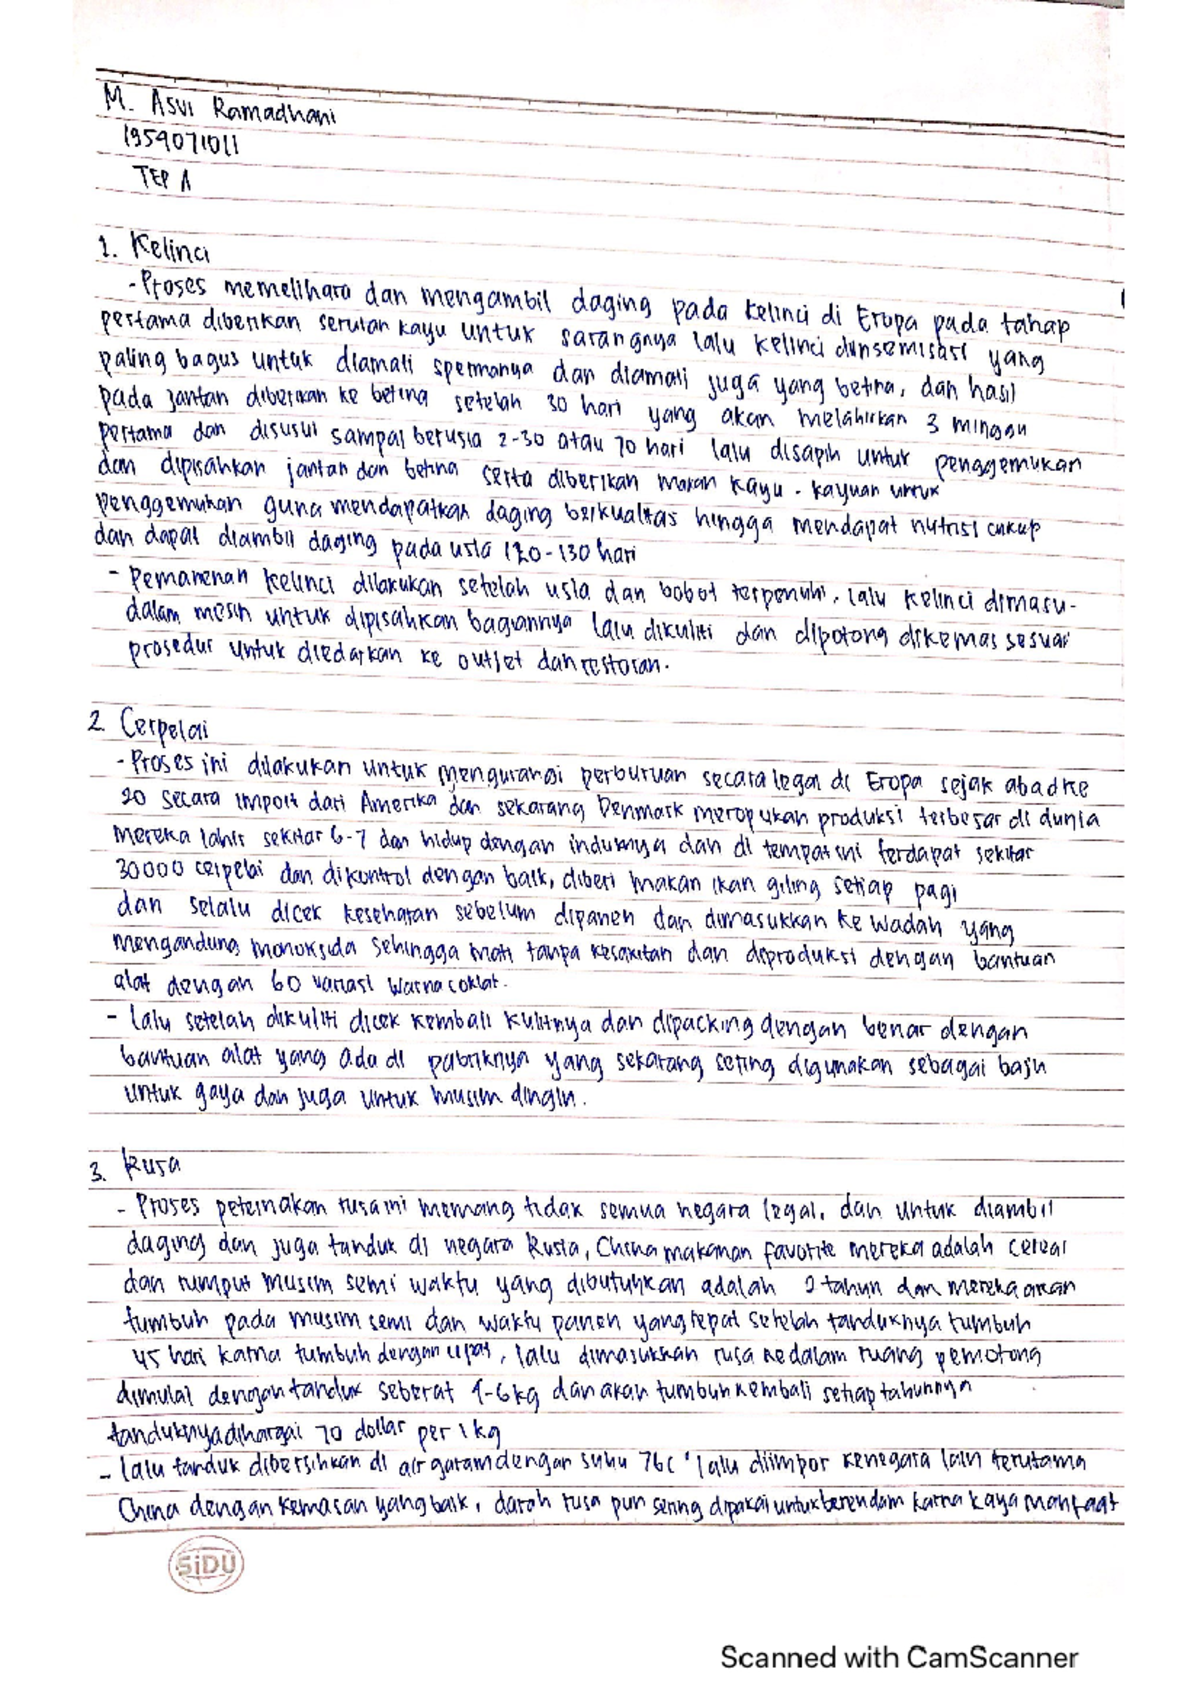 M. Asvi Ramadhani
1959071011
TEP A
1. Kelinci
- Proses memelihara dan mengambil daging pada kelinci di Eropa pada tahap
pertama diberikan serutan kayu untuk sarangnya lalu kelinci yang
paling bagus untuk diamati spermanya dan diamati juga yang betina, dan hasil
pada jantan diberikan ke betina setelah 30 hari yang akan melahirkan 3 minggu
pertama dan disusui sampai berusia 2-30 atau 70 hari lalu disapih untuk penggemukan
dan dipisahkan jantan dan betina serta diberikan makan kayu - kayuan untuk
penggemukan guna mendapatkan daging berkualitas hingga mendapat nutrisi cukup
dan dapat diambil daging pada usia 120-130 hari
- Pemanenan kelinci dilakukan setelah usia dan bobot terpenuhi, lalu kelinci dimasu-
dalam mesin untuk dipisahkan bagiannya lalu dikuliti dan dipotong dikemas sesuai
prosedur untuk diedarkan ke outlet dan restoran.
2. Cerpelai
- Proses ini dilakukan untuk mengurangi perburuan secara legal di Eropa sejak abad ke
20 secara import dari Amerika dan sekarang Denmark merupukan produksi terbesar di dunia
mereka lahir sekitar 6-7 dan hidup dengan induknya dan di tempat ini terdapat sekitar
30000 cerpelai dan dikontrol dengan baik, diberi makan ikan giling setiap pagi
dan selalu dicek kesehatan sebelum dipanen dan dimasukkan ke wadah yang
mengandung monoksida sehingga mati tanpa kesakitan dan diproduksi dengan bantuan
alat dengan 60 variasi warna coklat.
- lalu setelah dikuliti dicek kembali kulitnya dan dipacking dengan benar dengan
bantuan alat yang ada di pabriknya yang sekarang sering digunakan sebagai baju
untuk gaya dan juga untuk musim dingin.
3. Rusa
- Proses peternakan rusa ini memang tidak semua negara legal, dan untuk diambil
daging dan juga tanduk di negara Rusia, China makanan favorite mereka adalah cereal
dan rumput musim semi waktu yang dibutuhkan adalah 2 tahun dan mereka akan
tumbuh pada musim semi dan waktu panen yang tepat setelah tanduknya tumbuh
45 hari karna tumbuh dengan cepat, lalu dimasukkan rusa kedalam ruang pemotong
dimulai dengan tanduk seberat 4-6 kg dan akan tumbuh kembali setiap tahunnya
tanduknya dihargai 70 dollar per 1 kg
- lalu tanduk dibersihkan di air garam dengan suhu 76c° lalu diimpor kenegara lain terutama
China dengan kemasan yang baik, darah rusa pun sering dipakai untuk berendam karna kaya manfaat
SiDU
Scanned with CamScanner